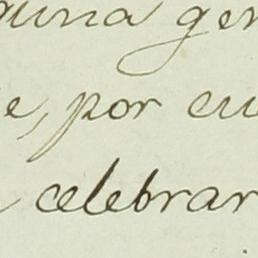 guna gen
e, por cu
celebrar